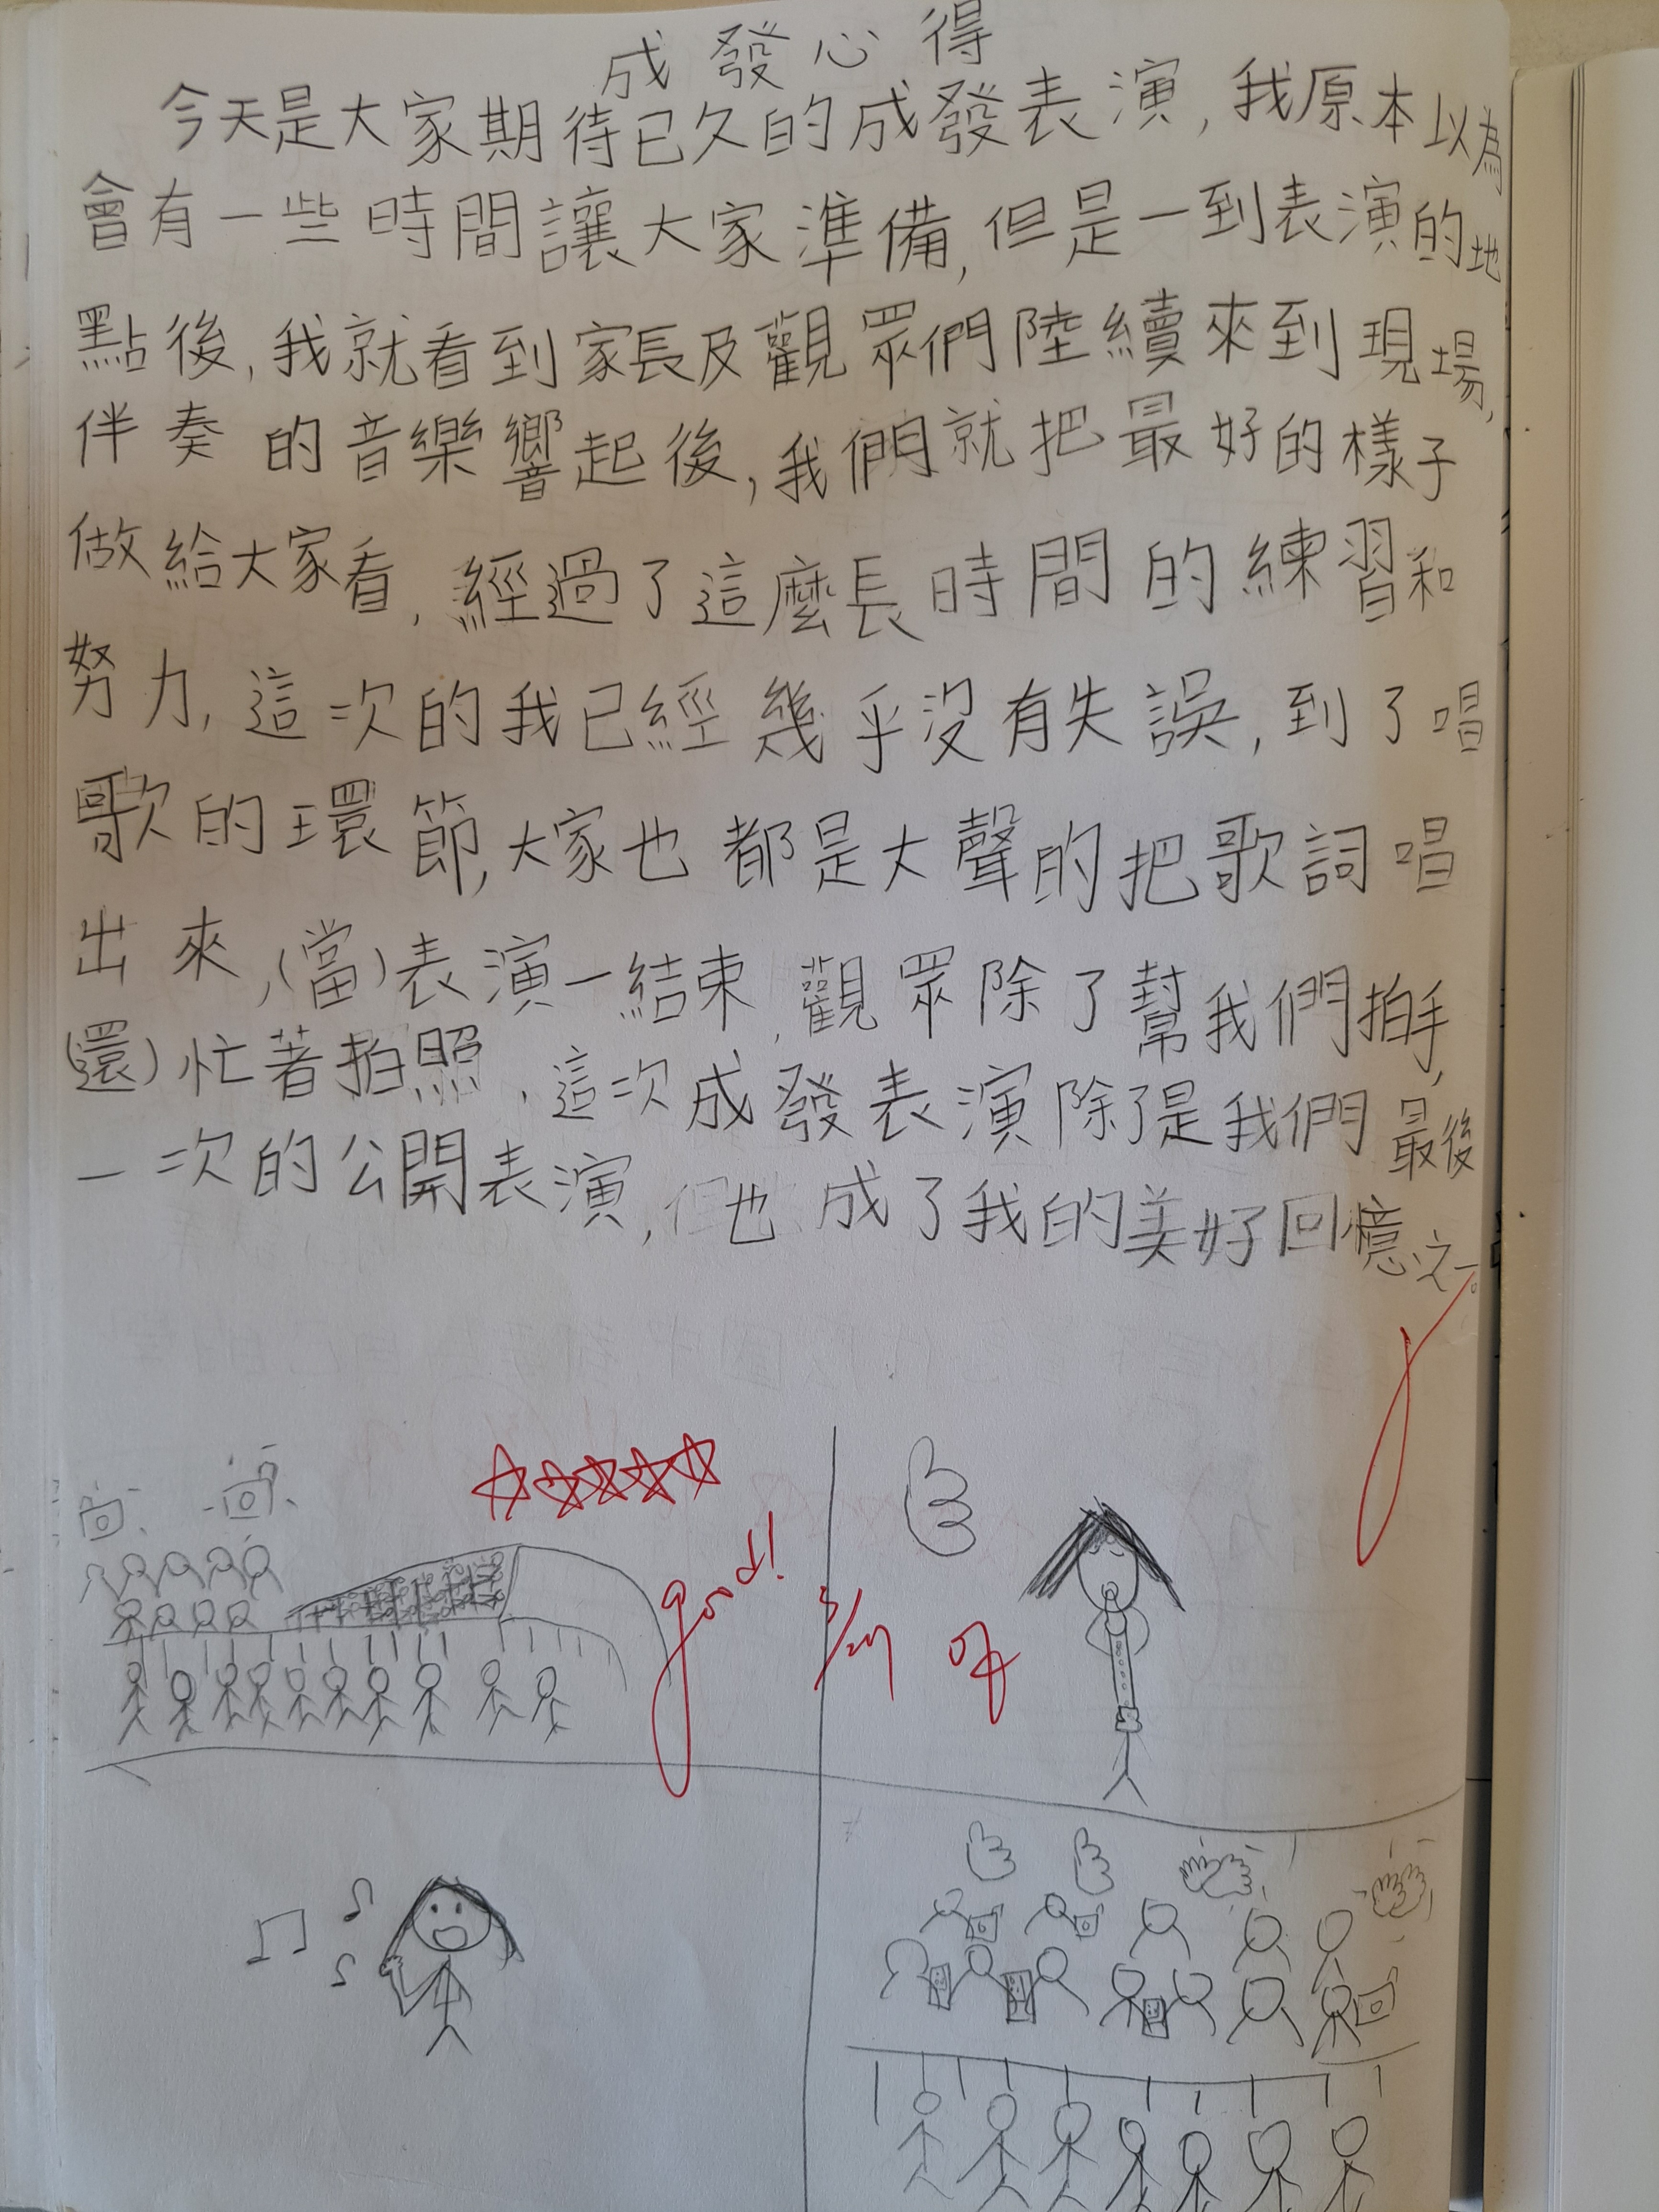 成發心得
今天是大家期待已久的成發表演,我原本以為
會有一些時間讓大家準備,但是一到表演的地
點後,我就看到家長及觀眾們陸續來到現場,
伴奏的音樂響起後,我們就把最好的樣子
做給大家看,經過了這麼長時間的練習和
努力,這次的我已經幾乎沒有失誤,到了唱
歌的環節,大家也都是大聲的把歌詞唱
出來,(當)表演一結束,觀眾除了幫我們拍手,
(還)忙著拍照,這次成發表演除了是我們最後
一次的公開表演,但也成了我的美好回憶之一。
good!